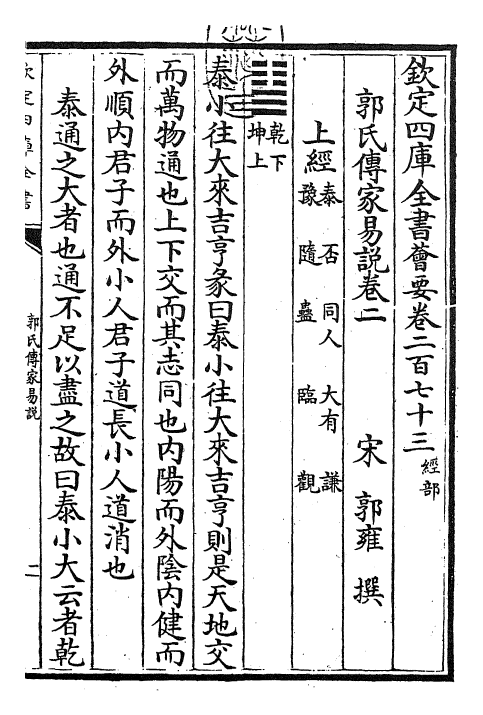 欽定四庫全書薈要卷二百七十三 經部
郭氏傳家易說卷二
宋 郭雍 撰
上經 泰 否 同人 大有 謙
豫 隨 蠱 臨 觀
乾下
坤上
泰小往大來吉亨彖曰泰小往大來吉亨則是天地交
而萬物通也上下交而其志同也內陽而外陰內健而
外順內君子而外小人君子道長小人道消也
泰通之大者也通不足以盡之故曰泰小大云者乾
欽定四庫全書
郭氏傳家易說
二